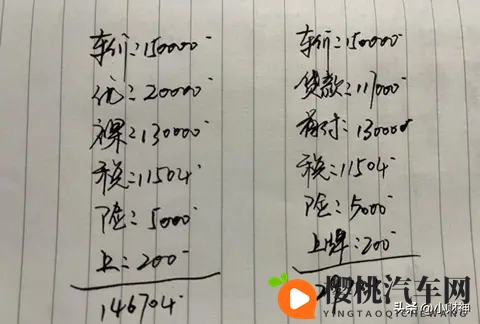 车价:150000
优:20000
裸:130000
税:11504
险:5000
上:200
146704
车价:150000
贷款:117000
首付:130000
税:11504
险:5000
上牌:200
樱桃汽车网
YINGTAOQICHEWANG
头条